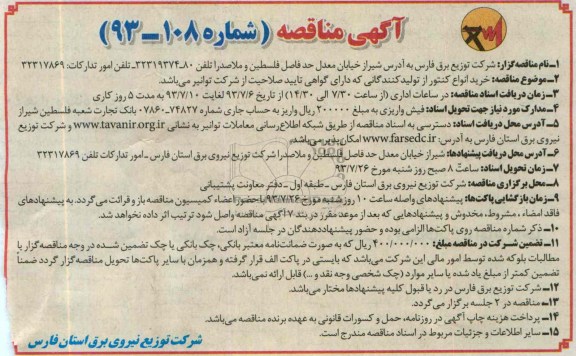 آگهی مناقصه (شماره ۱۰۸-۹۳)
۱- نام مناقصه‌گزار: شرکت توزیع برق فارس به آدرس شیراز خیابان معدل حد فاصل فلسطین و ملاصدرا تلفن ۸۰-۳۲۳۱۹۳۷۴- تلفن امور تدارکات: ۳۲۳۱۷۸۶۹
۲- موضوع مناقصه: خرید انواع کنتور از تولیدکنندگانی که دارای گواهی تایید صلاحیت از شرکت توانیر می‌باشد.
۳- زمان دریافت اسناد مناقصه: در ساعات اداری (از ساعت ۷/۳۰ الی ۱۴/۳۰) از تاریخ ۹۳/۷/۶ لغایت ۹۳/۷/۱۰ به مدت ۵ روز کاری
۴- مدارک مورد نیاز جهت تحویل اسناد: فیش واریزی به مبلغ ۲۰۰۰۰۰ ریال واریز به حساب جاری شماره ۷۴۸۲۷-۰۷۸۶۰ بانک تجارت شعبه فلسطین شیراز
۵- آدرس محل دریافت اسناد: دسترسی به اسناد مناقصه از طریق شبکه اطلاع‌رسانی معاملات توانیر به نشانی www.tavanir.org.ir و شرکت توزیع
نیروی برق استان فارس به آدرس: www.farsedc.ir امکان پذیر می‌باشد.
۶- آدرس محل دریافت پیشنهادها: شیراز خیابان معدل حد فاصل فلسطین و ملاصدرا شرکت توزیع نیروی برق استان فارس - امور تدارکات تلفن ۳۲۳۱۷۸۶۹
۷- زمان تحویل اسناد: ساعت ۸ صبح روز شنبه مورخ ۹۳/۷/۲۶
۸- محل برگزاری مناقصه: شرکت توزیع نیروی برق استان فارس - طبقه اول - دفتر معاونت پشتیبانی
۹- زمان بازگشایی پاکت‌ها: پیشنهادهای واصله ساعت ۱۰ روز شنبه مورخ ۹۳/۷/۲۶ با حضور اعضاء کمیسیون مناقصه باز و قرائت می‌گردد. به پیشنهادهای
فاقد امضاء، مشروط، مخدوش و پیشنهادهایی که بعد از موعد مقرر در بند ۷ آگهی مناقصه واصل شود ترتیب اثر داده نخواهد شد.
۱۰- ذکر شماره مناقصه روی پاکت‌ها الزامی بوده و حضور پیشنهاددهندگان در جلسه آزاد است.
۱۱- تضمین شرکت در مناقصه مبلغ: ۴۰۰/۰۰۰/۰۰۰ ریال که به صورت ضمانت‌نامه معتبر بانکی، چک بانکی یا چک تضمین شده در وجه مناقصه‌گزار یا
مطالبات بلوکه شده توسط امور مالی این شرکت می‌باشد که بایستی در پاکت الف قرار گرفته و همزمان با سایر پاکت‌ها تحویل مناقصه‌گزار گردد ضمناً
تضمین کمتر از مبلغ یاد شده یا سایر موارد (چک شخصی وجه نقد و ...) قابل ارائه نمی‌باشد.
۱۲- شرکت توزیع برق استان فارس در رد یا قبول کلیه پیشنهادها مختار می‌باشد.
۱۳- مناقصه در ۲ جلسه برگزار می‌گردد.
۱۴- پرداخت هزینه چاپ آگهی در روزنامه، حمل و کسورات قانونی به عهده برنده مناقصه می‌باشد.
۱۵- سایر اطلاعات و جزئیات مربوط در اسناد مناقصه مندرج است.
شرکت توزیع نیروی برق استان فارس